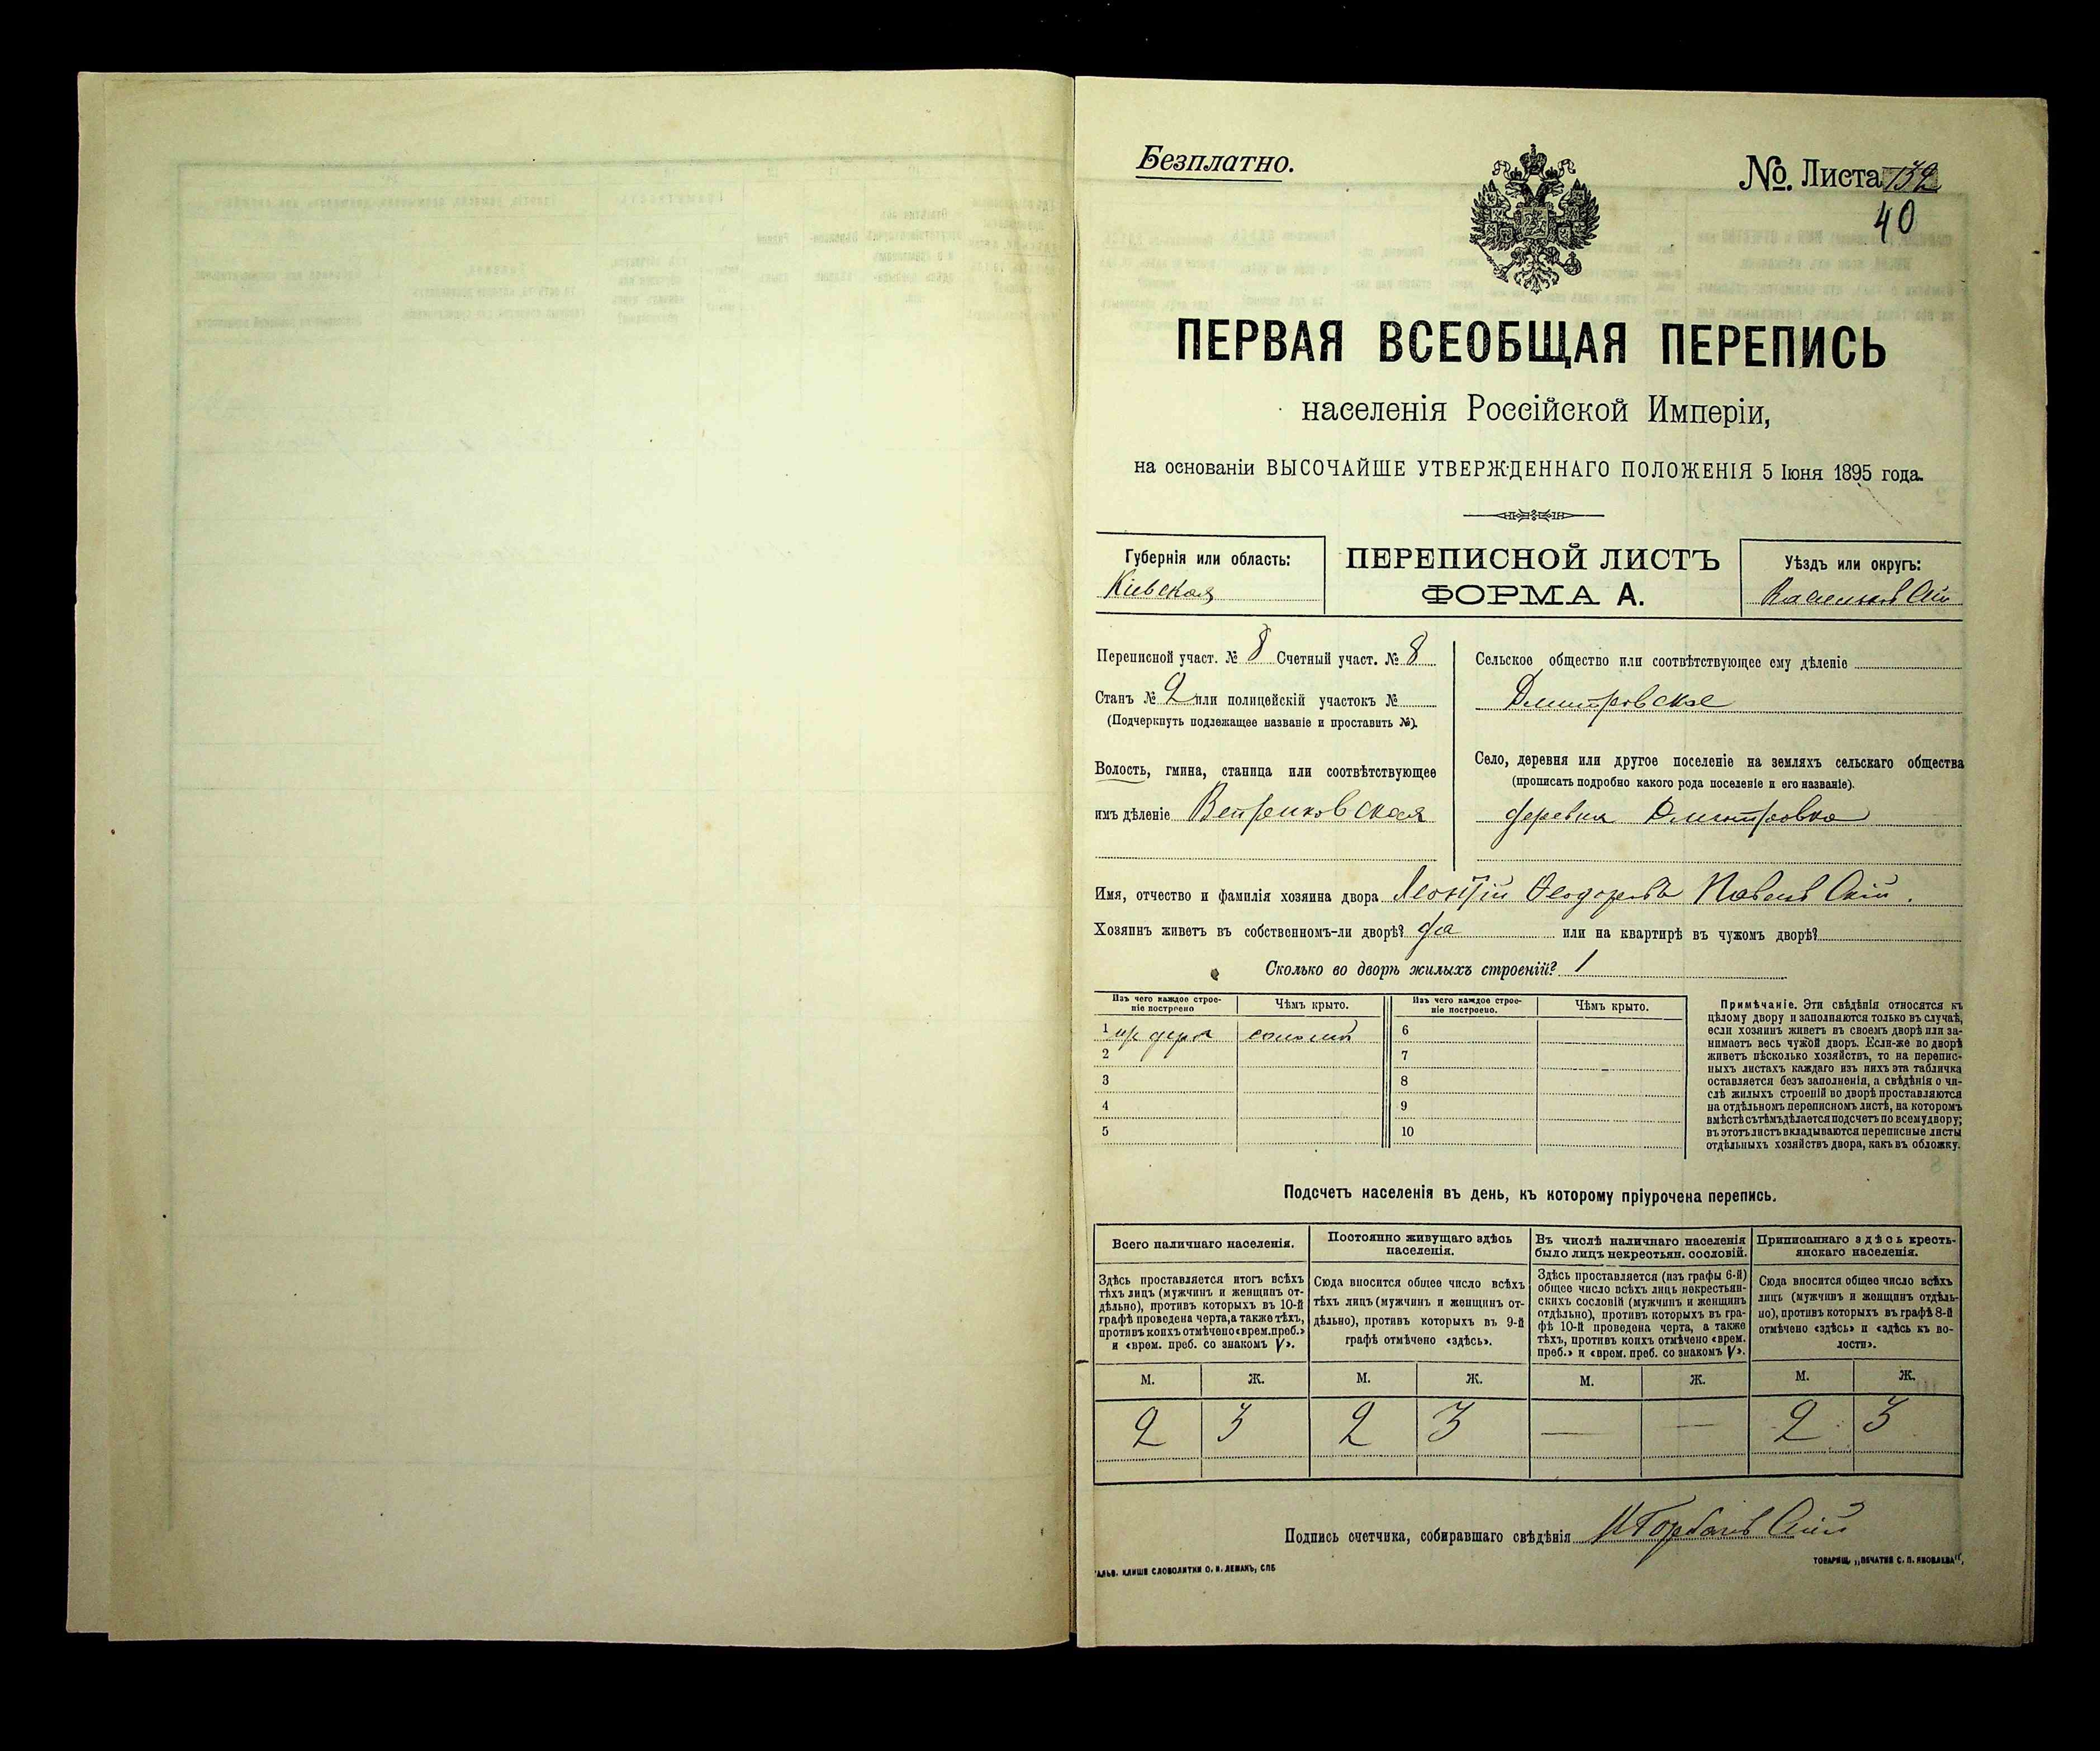 Безплатно.
№. Листа 132
40
ПЕРВАЯ ВСЕОБЩАЯ ПЕРЕПИСЬ
населенія Россійской Имперіи,
на основаніи ВЫСОЧАЙШЕ УТВЕРЖДЕННАГО ПОЛОЖЕНІЯ 5 Іюня 1895 года.
Губернія или область:
Кіевская
ПЕРЕПИСНОЙ ЛИСТЪ
ФОРМА А.
Уѣздъ или округъ:
Васильковскій
Переписной участ. № 8 Счетный участ. № 8
Станъ № 2 или полицейскій участокъ №
(Подчеркнуть подлежащее названіе и проставить №).
Волость, гмина, станица или соотвѣтствующее
имъ дѣленіе
Сельское общество или соотвѣтствующее ему дѣленіе
Дмитровское
Село, деревня или другое поселеніе на земляхъ сельскаго общества
(прописать подробно какого рода поселеніе и его названіе).
деревня Дмитровка
Имя, отчество и фамилія хозяина двора Леонтій Феодоровъ
Хозяинъ живетъ въ собственномъ-ли дворѣ? да или на квартирѣ въ чужомъ дворѣ?
Сколько во дворѣ жилыхъ строеній? 1
Изъ чего каждое строе-
ніе построено
Чѣмъ крыто.
Изъ чего каждое строе-
ніе построено.
Чѣмъ крыто.
1 дерева соломой 6
2 7
3 8
4 9
5 10
Примѣчаніе. Эти свѣдѣнія относятся къ
цѣлому двору и заполняются только въ случаѣ,
если хозяинъ живетъ въ своемъ дворѣ или за-
нимаетъ весь чужой дворъ. Если-же во дворѣ
живетъ нѣсколько хозяйствъ, то на перепис-
ныхъ листахъ каждаго изъ нихъ эта табличка
оставляется безъ заполненія, а свѣдѣнія о чи-
слѣ жилыхъ строеній во дворѣ проставляются
на отдѣльномъ переписномъ листѣ, на которомъ
вмѣстѣ съ тѣмъ дѣлается подсчетъ по всему двору;
въ этотъ листъ вкладываются переписные листы
отдѣльныхъ хозяйствъ двора, какъ въ обложку.
Подсчетъ населенія въ день, къ которому пріурочена перепись.
Всего наличнаго населенія.
Здѣсь проставляется итогъ всѣхъ
тѣхъ лицъ (мужчинъ и женщинъ от-
дѣльно), противъ которыхъ въ 10-й
графѣ проведена черта, а также тѣхъ,
противъ коихъ отмѣчено «врем. преб.»
и «врем. преб. со знакомъ V».
Постоянно живущаго здѣсь
населенія.
Сюда вносится общее число всѣхъ
тѣхъ лицъ (мужчинъ и женщинъ от-
дѣльно), противъ которыхъ въ 9-й
графѣ отмѣчено «здѣсь».
Въ числѣ наличнаго населенія
было лицъ некрестьян. сословій.
Здѣсь проставляется (изъ графы 6-й)
общее число всѣхъ лицъ некрестьян-
скихъ сословій (мужчинъ и женщинъ
отдѣльно), противъ которыхъ въ гра-
фѣ 10-й проведена черта, а также
тѣхъ, противъ коихъ отмѣчено «врем.
преб.» и «врем. преб. со знакомъ V».
Приписаннаго здѣсь кресть-
янскаго населенія.
Сюда вносится общее число всѣхъ
лицъ (мужчинъ и женщинъ отдѣль-
но), противъ которыхъ въ графѣ 8-й
отмѣчено «здѣсь» и «здѣсь къ во-
лости».
М. Ж. М. Ж. М. Ж. М. Ж.
2 3 2 3 — — 2 3
Подпись счетчика, собиравшаго свѣдѣнія
ГАЛЬВ. КЛИШЕ СЛОВОЛИТНИ О. И. ЛЕМАНЪ, СПБ
ТОВАРИЩ. „ПЕЧАТНЯ С. П. ЯКОВЛЕВА“,